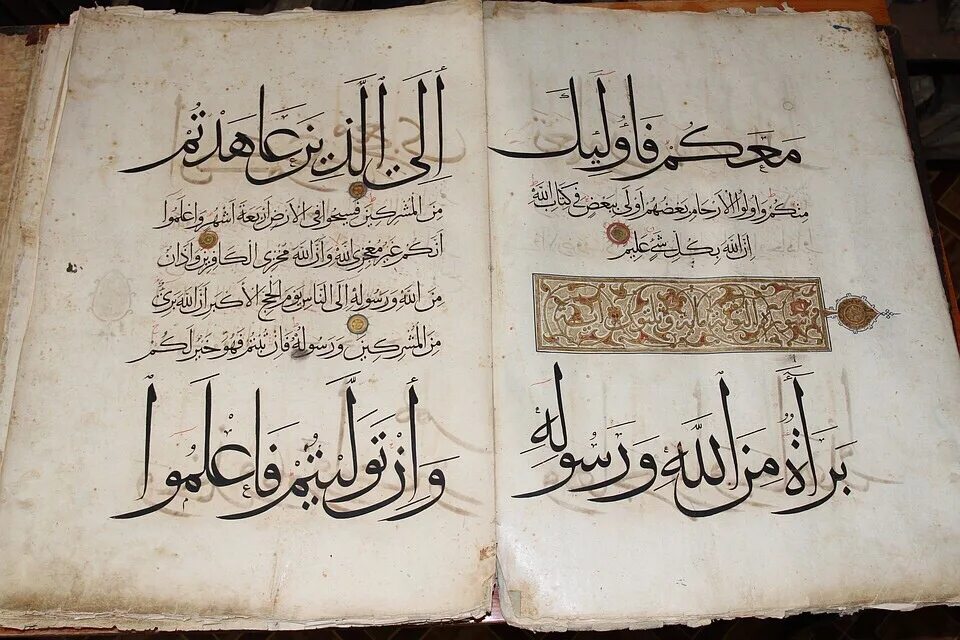 معكم فاولئك
منكم واولوا الارحام بعضهم اولى ببعض في كتاب الله
ان الله بكل شيء عليم
براة من الله ورسوله
الى الذين عاهدتم
من المشركين فسيحوا في الارض اربعة اشهر واعلموا
انكم غير معجزي الله وان الله مخزي الكافرين واذان
من الله ورسوله الى الناس يوم الحج الاكبر ان الله بريء
من المشركين ورسوله فان تبتم فهو خير لكم
وان توليتم فاعلموا